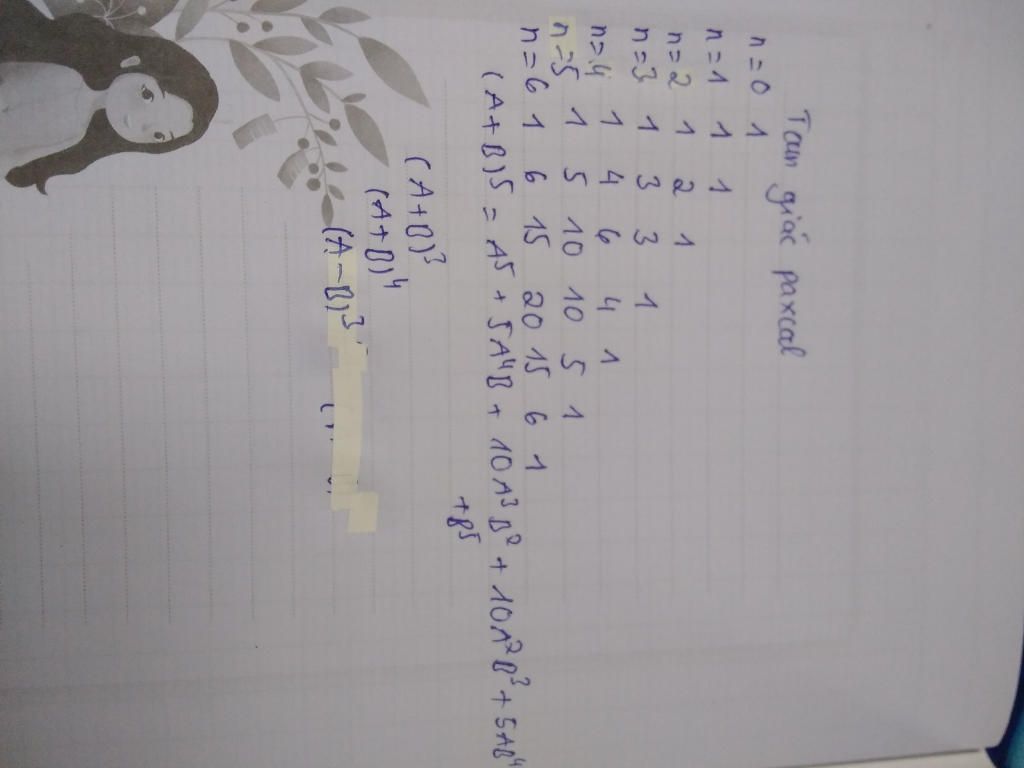 Tam giác paxcal
n = 0 1
n = 1 1 1
n = 2 1 2 1
n = 3 1 3 3 1
n = 4 1 4 6 4 1
n = 5 1 5 10 10 5 1
n = 6 1 6 15 20 15 6 1
(A + B)⁵ = A⁵ + 5A⁴B + 10A³B² + 10A²B³ + 5AB⁴
+ B⁵
(A + B)³
(A + B)⁴
(A - B)³